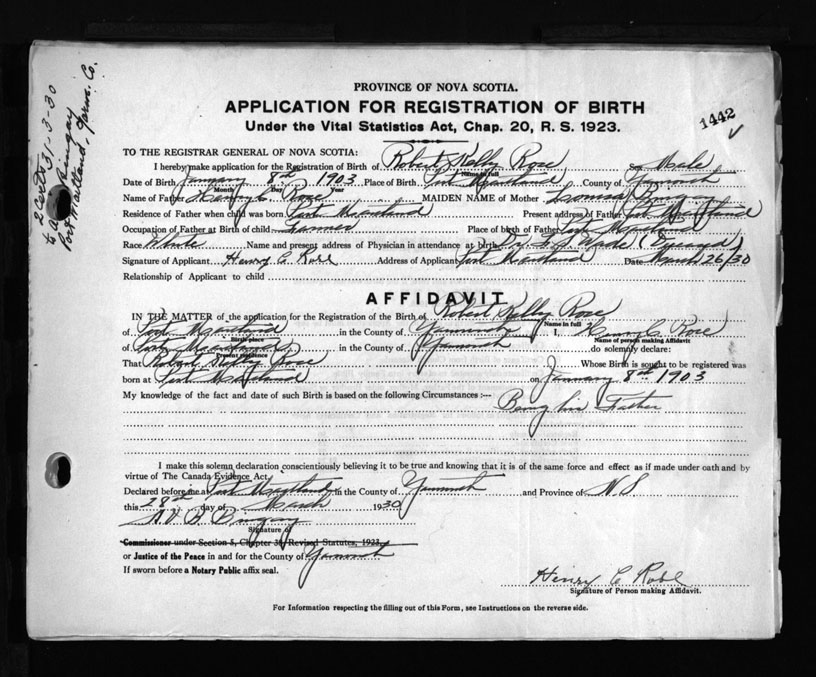 PROVINCE OF NOVA SCOTIA.
APPLICATION FOR REGISTRATION OF BIRTH
Under the Vital Statistics Act, Chap. 20, R. S. 1923.
1442
2 Certs 31-3-30
Bingay
Port Maitland, Yarm. Co.
TO THE REGISTRAR GENERAL OF NOVA SCOTIA:
I hereby make application for the Registration of Birth of Robert Kelly Rose Sex Male
Name in full
Date of Birth January 8th 1903 Place of Birth Port Maitland County of Yarmouth
Month Day Year
Name of Father Henry C. Rose MAIDEN NAME of Mother
Residence of Father when child was born Port Maitland Present address of Father Port Maitland
Occupation of Father at Birth of child Place of birth of Father Port Maitland
Race White Name and present address of Physician in attendance at birth Dr. Wade (Deceased)
Signature of Applicant Henry C Address of Applicant Port Maitland Date March 26/30
Relationship of Applicant to child
AFFIDAVIT
IN THE MATTER of the application for the Registration of the Birth of Robert Kelly Rose
Name in full
of Port Maitland in the County of Yarmouth I, Henry C. Rose
Birth-place Name of person making Affidavit
of Port Maitland in the County of Yarmouth do solemnly declare:
Present residence
That Robert Kelly Rose Whose Birth is sought to be registered was
born at Port Maitland on January 8th 1903
My knowledge of the fact and date of such Birth is based on the following Circumstances :—
Being his Father
I make this solemn declaration conscientiously believing it to be true and knowing that it is of the same force and effect as if made under oath and by
virtue of The Canada Evidence Act.
Declared before me at Port Maitland in the County of Yarmouth and Province of N.S
this 28th day of March 1930
Bingay
Signature of
Commissioner under Section 5, Chapter 38, Revised Statutes, 1923
or Justice of the Peace in and for the County of Yarmouth
If sworn before a Notary Public affix seal.
Henry C
Signature of Person making Affidavit.
For Information respecting the filling out of this Form, see Instructions on the reverse side.